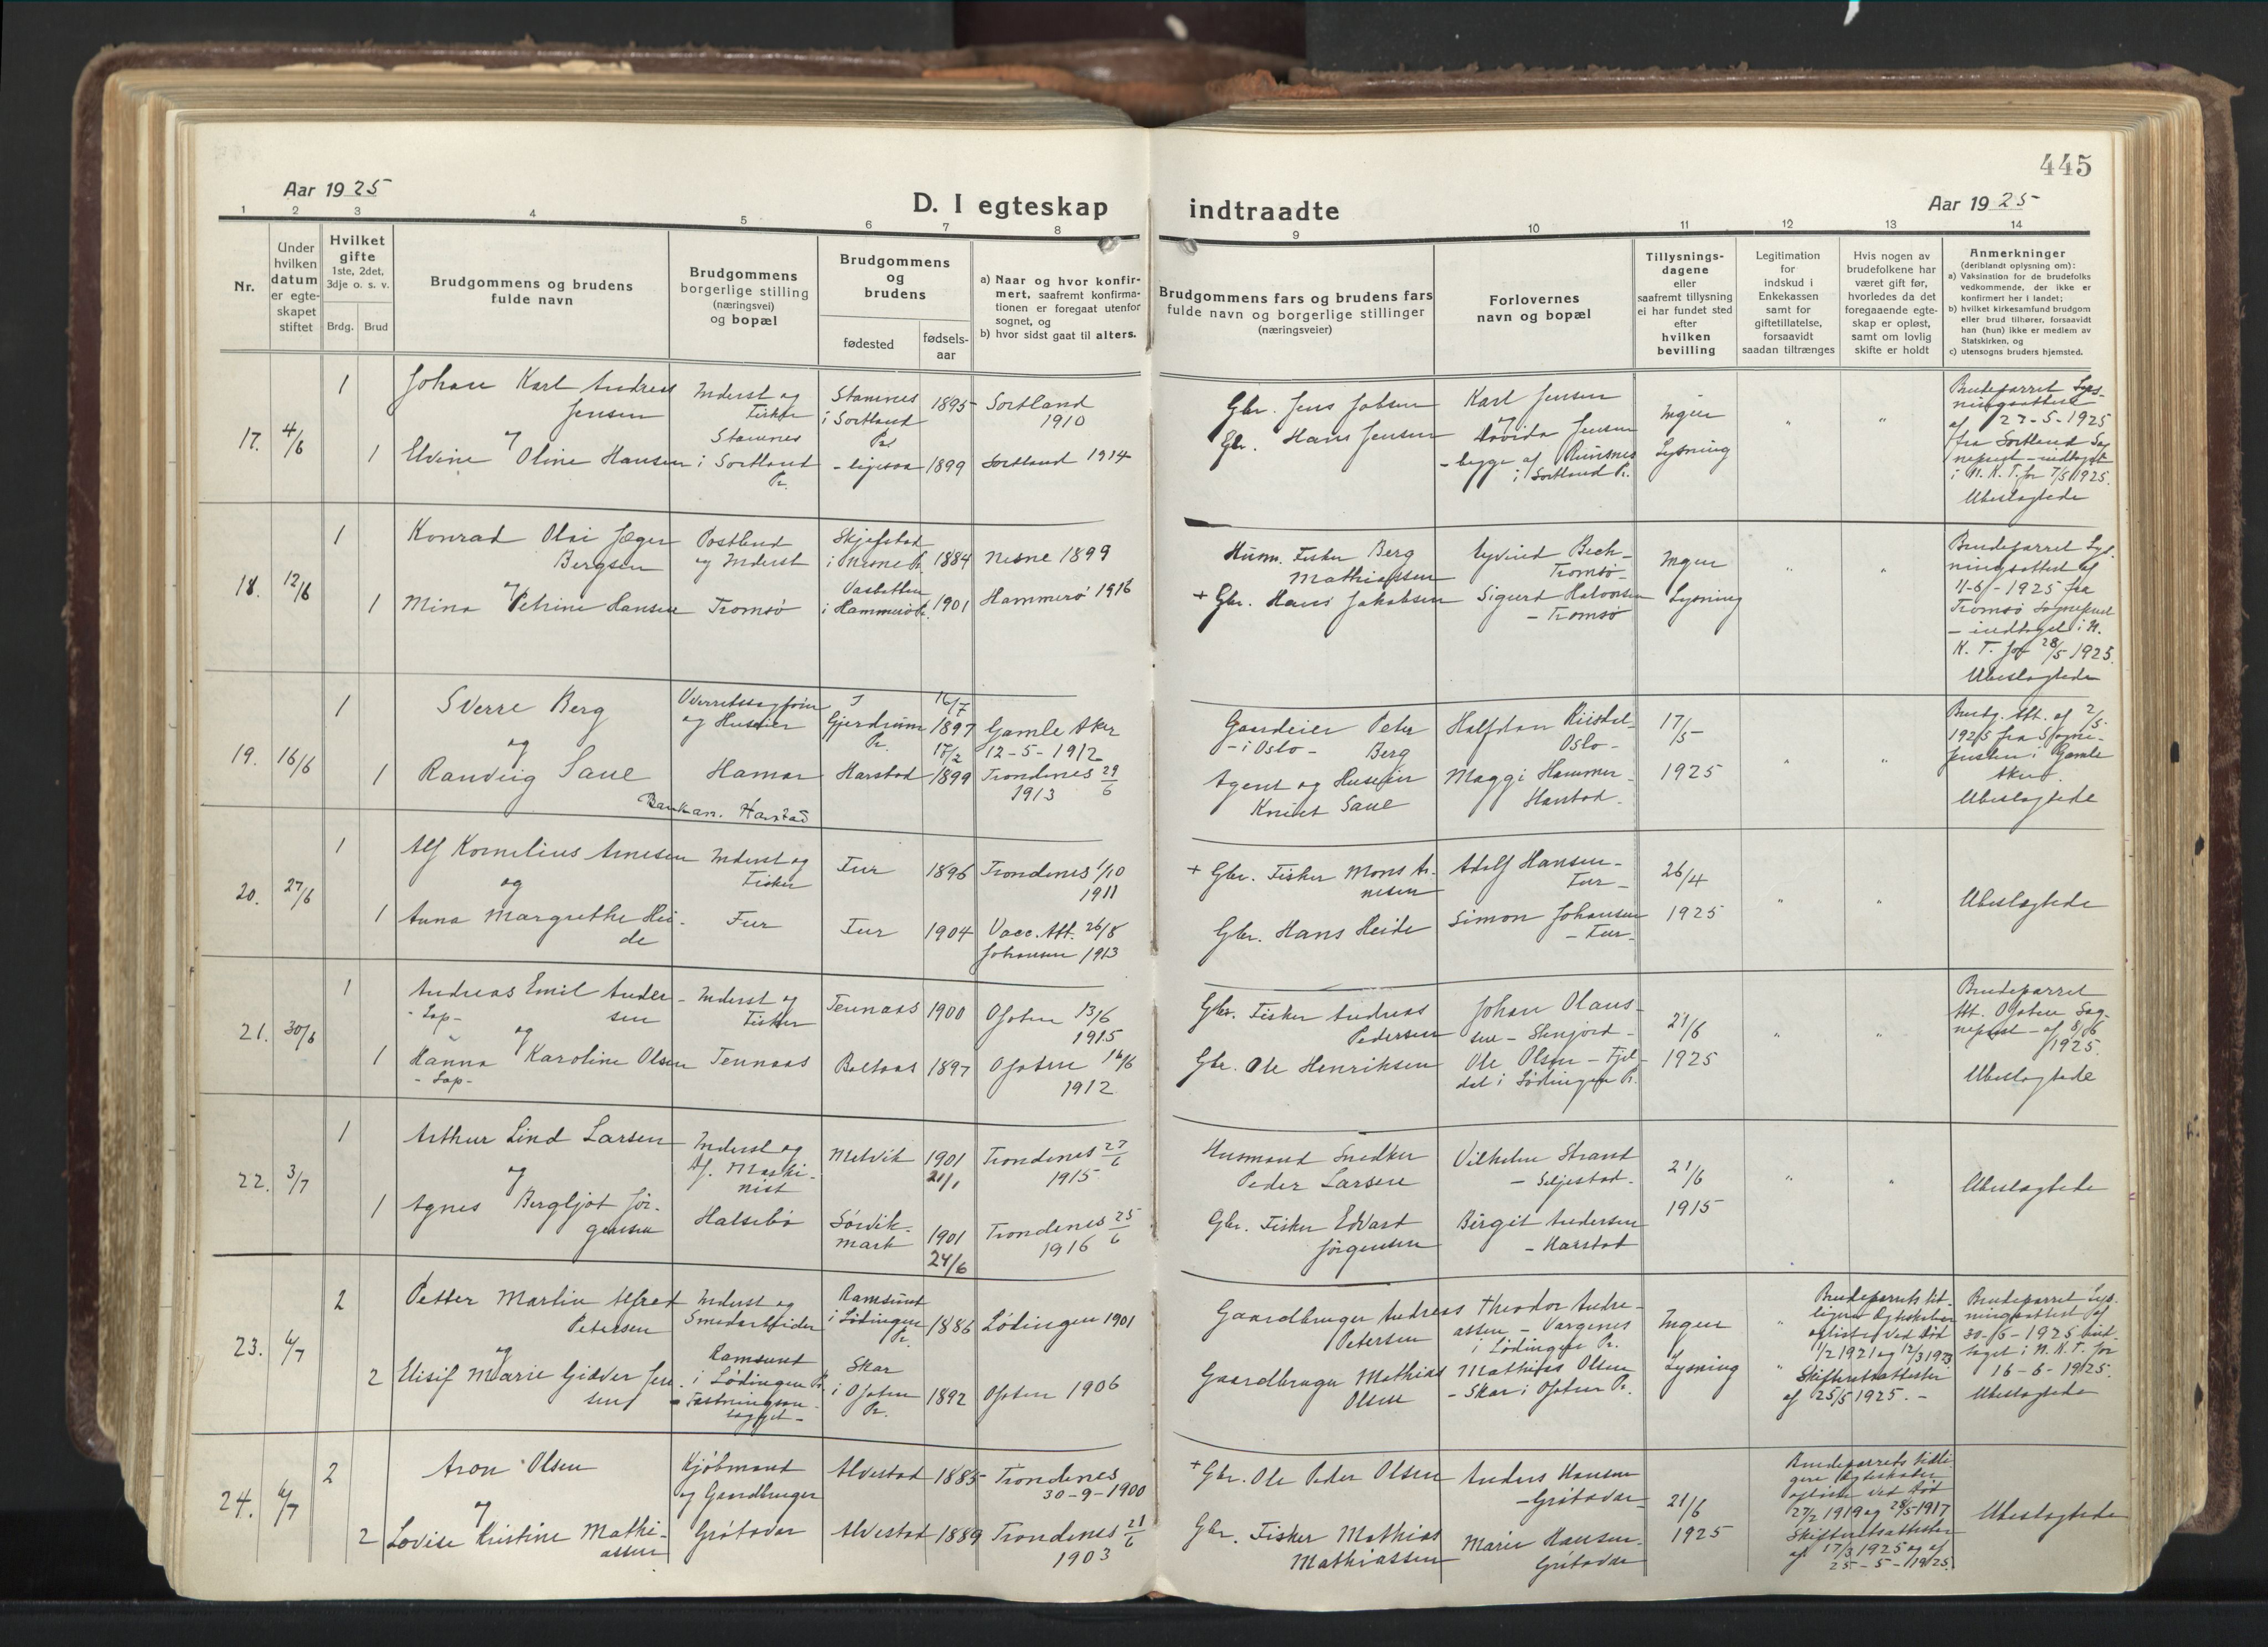 445
Aar 1925
D. I egteskap indtraadte
Aar 1925
1 2 3 4 5 6 7 8 9 10 11 12 13 14
Nr.
Under hvilken datum er egteskapet stiftet
Hvilket gifte
1ste, 2det, 3dje o. s. v.
Brdg. Brud
Brudgommens og brudens fulde navn
Brudgommens borgerlige stilling (næringsvei) og bopæl
Brudgommens og brudens
fødested
fødselsaar
a) Naar og hvor konfirmert, saafremt konfirmationen er foregaat utenfor sognet, og
b) hvor sidst gaat til alters.
Brudgommens fars og brudens fars fulde navn og borgerlige stillinger (næringsveier)
Forlovernes navn og bopæl
Tillysningsdagene eller saafremt tillysning ei har fundet sted efter hvilken bevilling
Legitimation for indskud i Enkekassen samt for giftetillatelse, forsaavidt saadan tiltrænges
Hvis nogen av brudefolkene har været gift før, hvorledes da det foregaaende egteskap er opløst, samt om lovlig skifte er holdt
Anmerkninger
(deriblandt oplysning om):
a) Vaksination for de brudefolks vedkommende, der ikke er konfirmert her i landet;
b) hvilket kirkesamfund brudgom eller brud tilhører, forsaavidt han (hun) ikke er medlem av Statskirken, og
c) utensogns bruders hjemsted.
17. 4/6
1
Johan Karl Andreas
Jensen
og
1
Elvine Oline Hansen
Inderst og
Fisker
Stamnes
i Sortland
Pr.
Stamnes
i Sortland
Pr.
1895
- ligesaa 1899
Sortland
1910
Sortland 1914
Gbr. Jens Jobsen
Gbr. Hans Jensen
Karl Jensen
og
Hovida Jensen
- begge af Rinsnes
i Sortland Pr.
Ingen
Lysning
" "
Brudeparret Lys-
ningsattest
af 27-5-1925
fra Sortland Sog
neprest - indtaget
i N. K. T. for 7/5 1925.
Ubeslegtede
18. 12/6
1
Konrad Olai Jæger
Bergsen
og
1
Mina Petrine Hansen
Postbud
og Inderst
Tromsø
Skjefstad
i Nesne Pr. 1884
i Hammerø Pr. 1901
Nesne 1899
Hammerø 1916
Husm. Fisker Berg
Mathiassen
+ Gbr. Hans Jakobsen
Øyvind Bech -
Tromsø -
Sigurd Halvorsen
- Tromsø
Ingen
Lysning
" "
Brudeparret Lys.
ningsattest af
11-6-1925 fra
Tromsø Sogneprest
- indtaget i N.
K. T. for 28/5 1925.
Ubeslegtede
19. 16/6
1
Sverre Berg
og
1
Ranveig Saue
Overretssagfører
og Huseier
Hamar
Bankan. Harstad
I
Gjerdrum
Pr.
Harstad
16/7
1897
17/2
1899
Gamle Aker
12-5-1912
Trondenes 29/6
1913
Gaardeier Peter
- i Oslo - Berg
Agent og Huseier
Knut Saue
Halfdan Riistel
Oslo -
Maggi Hammer -
Harstad.
17/5
1925
" "
Brudg. Att. af 2/5.
1925 fra Sogne-
presten i Gamle
Aker.
Ubeslegtede
20. 27/6
1
Alf Kornelius Arnesen
og
1
Anna Margrethe Hei-
de
Inderst og
Fisker
Fur
Fur 1896
Fur 1904
Trondenes 1/10
1911
Vacc. Att. 26/8
Johansen 1913
+ Gbr. Fisker Mons Ar-
nesen
Gbr. Hans Heide
Adolf Hansen -
Fur -
Simon Johansen
- Fur -
26/4
1925
" "
Ubeslegtede
21. 30/6
1
Andreas Emil Ander-
- Lap - sen
og
1
Hanna Karoline Olsen
- Lap -
Inderst og
Fisker
Tennaas
Tennaas 1900
Boltaas 1897
Ofoten 13/6
1915
Ofoten 16/6
1912
Gbr. Fisker Andreas
Pedersen
Gbr. Ole Henriksen
Johan Olaus-
sen - Stenjord -
Ole Olsen - Fjel-
dal i Lødingen Pr.
21/6
1925
" "
Brudeparret
Att. Ofoten Sog-
neprest - af 8/6
1925.
Ubeslegtede
22. 3/7
1
Arthur Lind Larsen
og
1
Agnes Bergljot Jør-
gensen
Inderst og
Af. Maski-
nist
Halsebø
Melvik 1901
21/1
Sørvik-
mark 1901
24/6
Trondenes 27/6
1915
Trondenes 25/6
1916
Husmand Snedker
Peder Larsen
Gbr. Fisker Edvart
Jørgensen
Vilhelm Strand
- Seljestad -
Birgit Andersen
- Harstad
21/6
1915
" "
Ubeslegtede
23. 6/7
2
Petter Martin Alfred
Petersen
og
2
Elisif Marie Gidver Jen-
sen
Inderst og
Smedarbeider
Ramsund
i Lødingen Pr.
Ramsund
i Lødingen
Pr. 1886
Skar
i Ofoten
Pr. 1892
Lødingen 1901
Ofoten 1906
Gaardbruger Andreas
Petersen
Gaardbruger Mathias
Olsen
Theodor Andre-
assen - Vargenes
i Lødingen Pr.
Mathias Olsen
- Skar i Ofoten Pr.
Ingen
Lysning
" "
Brudeparrets tid-
ligere Egteskaber
opløst ved Død
1/2 1921 og 12/3 1923
Skifteretsattester
af 25/5 1925. -
Brudeparret Lys-
ningsattest af
30-6-1925 Ind-
taget i N. K. T. for
16-6-1925.
Ubeslegtede
24. 6/7
2
Aron Olsen
og
2
Lovise Kristine Mathi-
assen
Kjøbmand
og Gaardbruger
Grøtavær
Alvestad 1885
Alvestad 1889
Trondenes
30-9-1900
Trondenes 21/6
1903
+ Gbr. Ole Peder Olsen
Gbr. Fisker Mathias
Mathiassen
Anders Hansen
- Grøtavær -
Marie Hansen -
Grøtavær
21/6
1925
Brudeparrets tidli-
gere Egteskaber
opløst ved Død
27/2 1919 og 28/5 1917
Skifteretsattester
af 17/3 1925 og af
25-5-1925.
Ubeslegtede